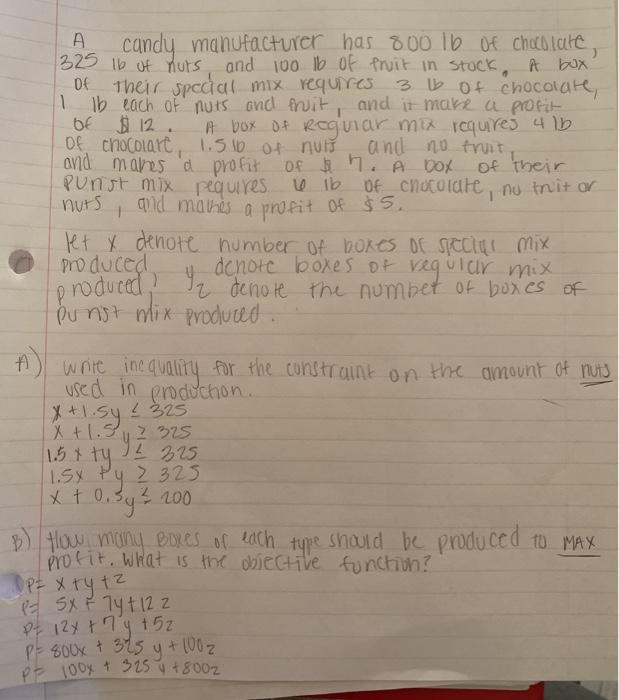 A candy manufacturer has 800 lb of chocolate,
325 lb of nuts, and 100 lb of fruit in stock. A box
of their special mix requires 3 lb of chocolate,
1 lb each of nuts and fruit, and it make a profit
of $12. A box of Regular mix requires 4 lb
of chocolate, 1.5 lb of nuts and no fruit,
and makes a profit of $7. A box of their
purist mix requires 6 lb of chocolate, no fruit or
nuts, and makes a profit of $5.
let x denote number of boxes of special mix
produced, y denote boxes of regular mix
produced, z denote the number of boxes of
purist mix produced.
A) write inequality for the constraint on the amount of nuts
used in production.
x + 1.5y ≤ 325
x + 1.5y ≥ 325
1.5x + y ≤ 325
1.5x + y ≥ 325
x + 0.5y ≤ 200
B) How many Boxes of each type should be produced to MAX
profit. What is the objective function?
P= x+y+z
P= 5x + 7y+12z
P= 12x + 7y +5z
P= 800x + 325y + 100z
P= 100x + 325y +800z